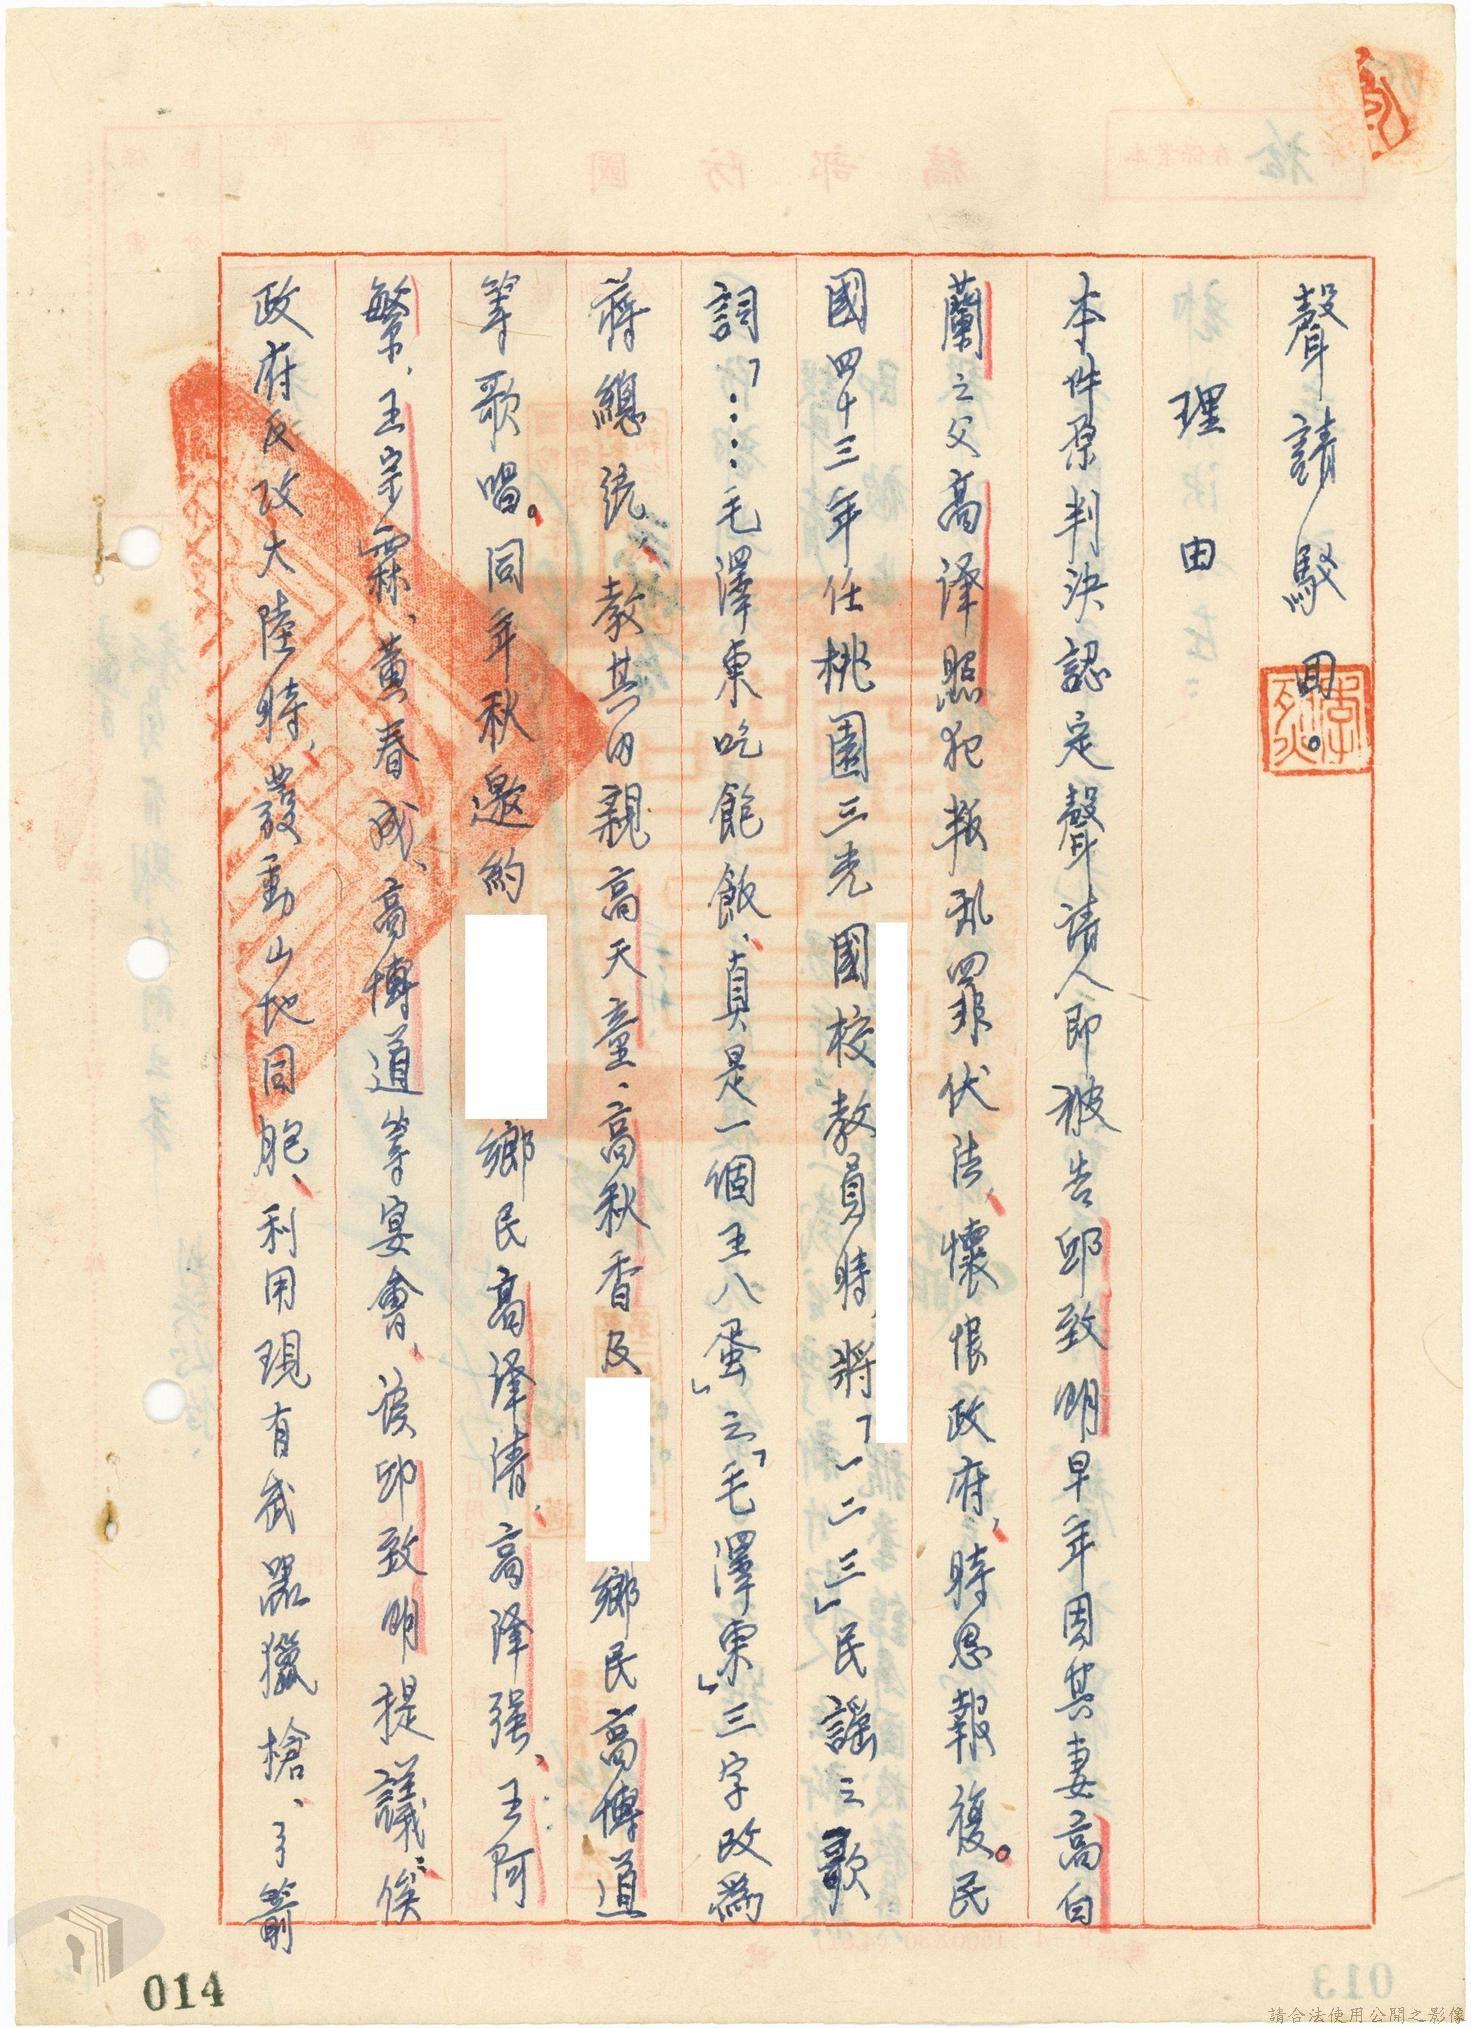 聲請駁回。
理由
本件原判決認定聲請人即被告邱致明早年因其妻高白
蘭之父高澤照犯叛乱罪伏法、懷恨政府、時思報復。民
國四十三年任桃園三光國校教員時、將「一二三」民謠之歌
詞「……毛澤東吃飽飯、真是一個王八蛋」之「毛澤東」三字改為
蔣總統、教其內親高天童、高秋香及
鄉民高博道
等歌唱。同年秋邀約
鄉民高澤清、高澤强、王阿
繁、王宗霖、黃春成、高博道等宴會、該邱致明提議：俟
政府反攻大陸時、發動山地同胞、利用現有武器獵槍、弓箭
014
請合法使用公開之影像